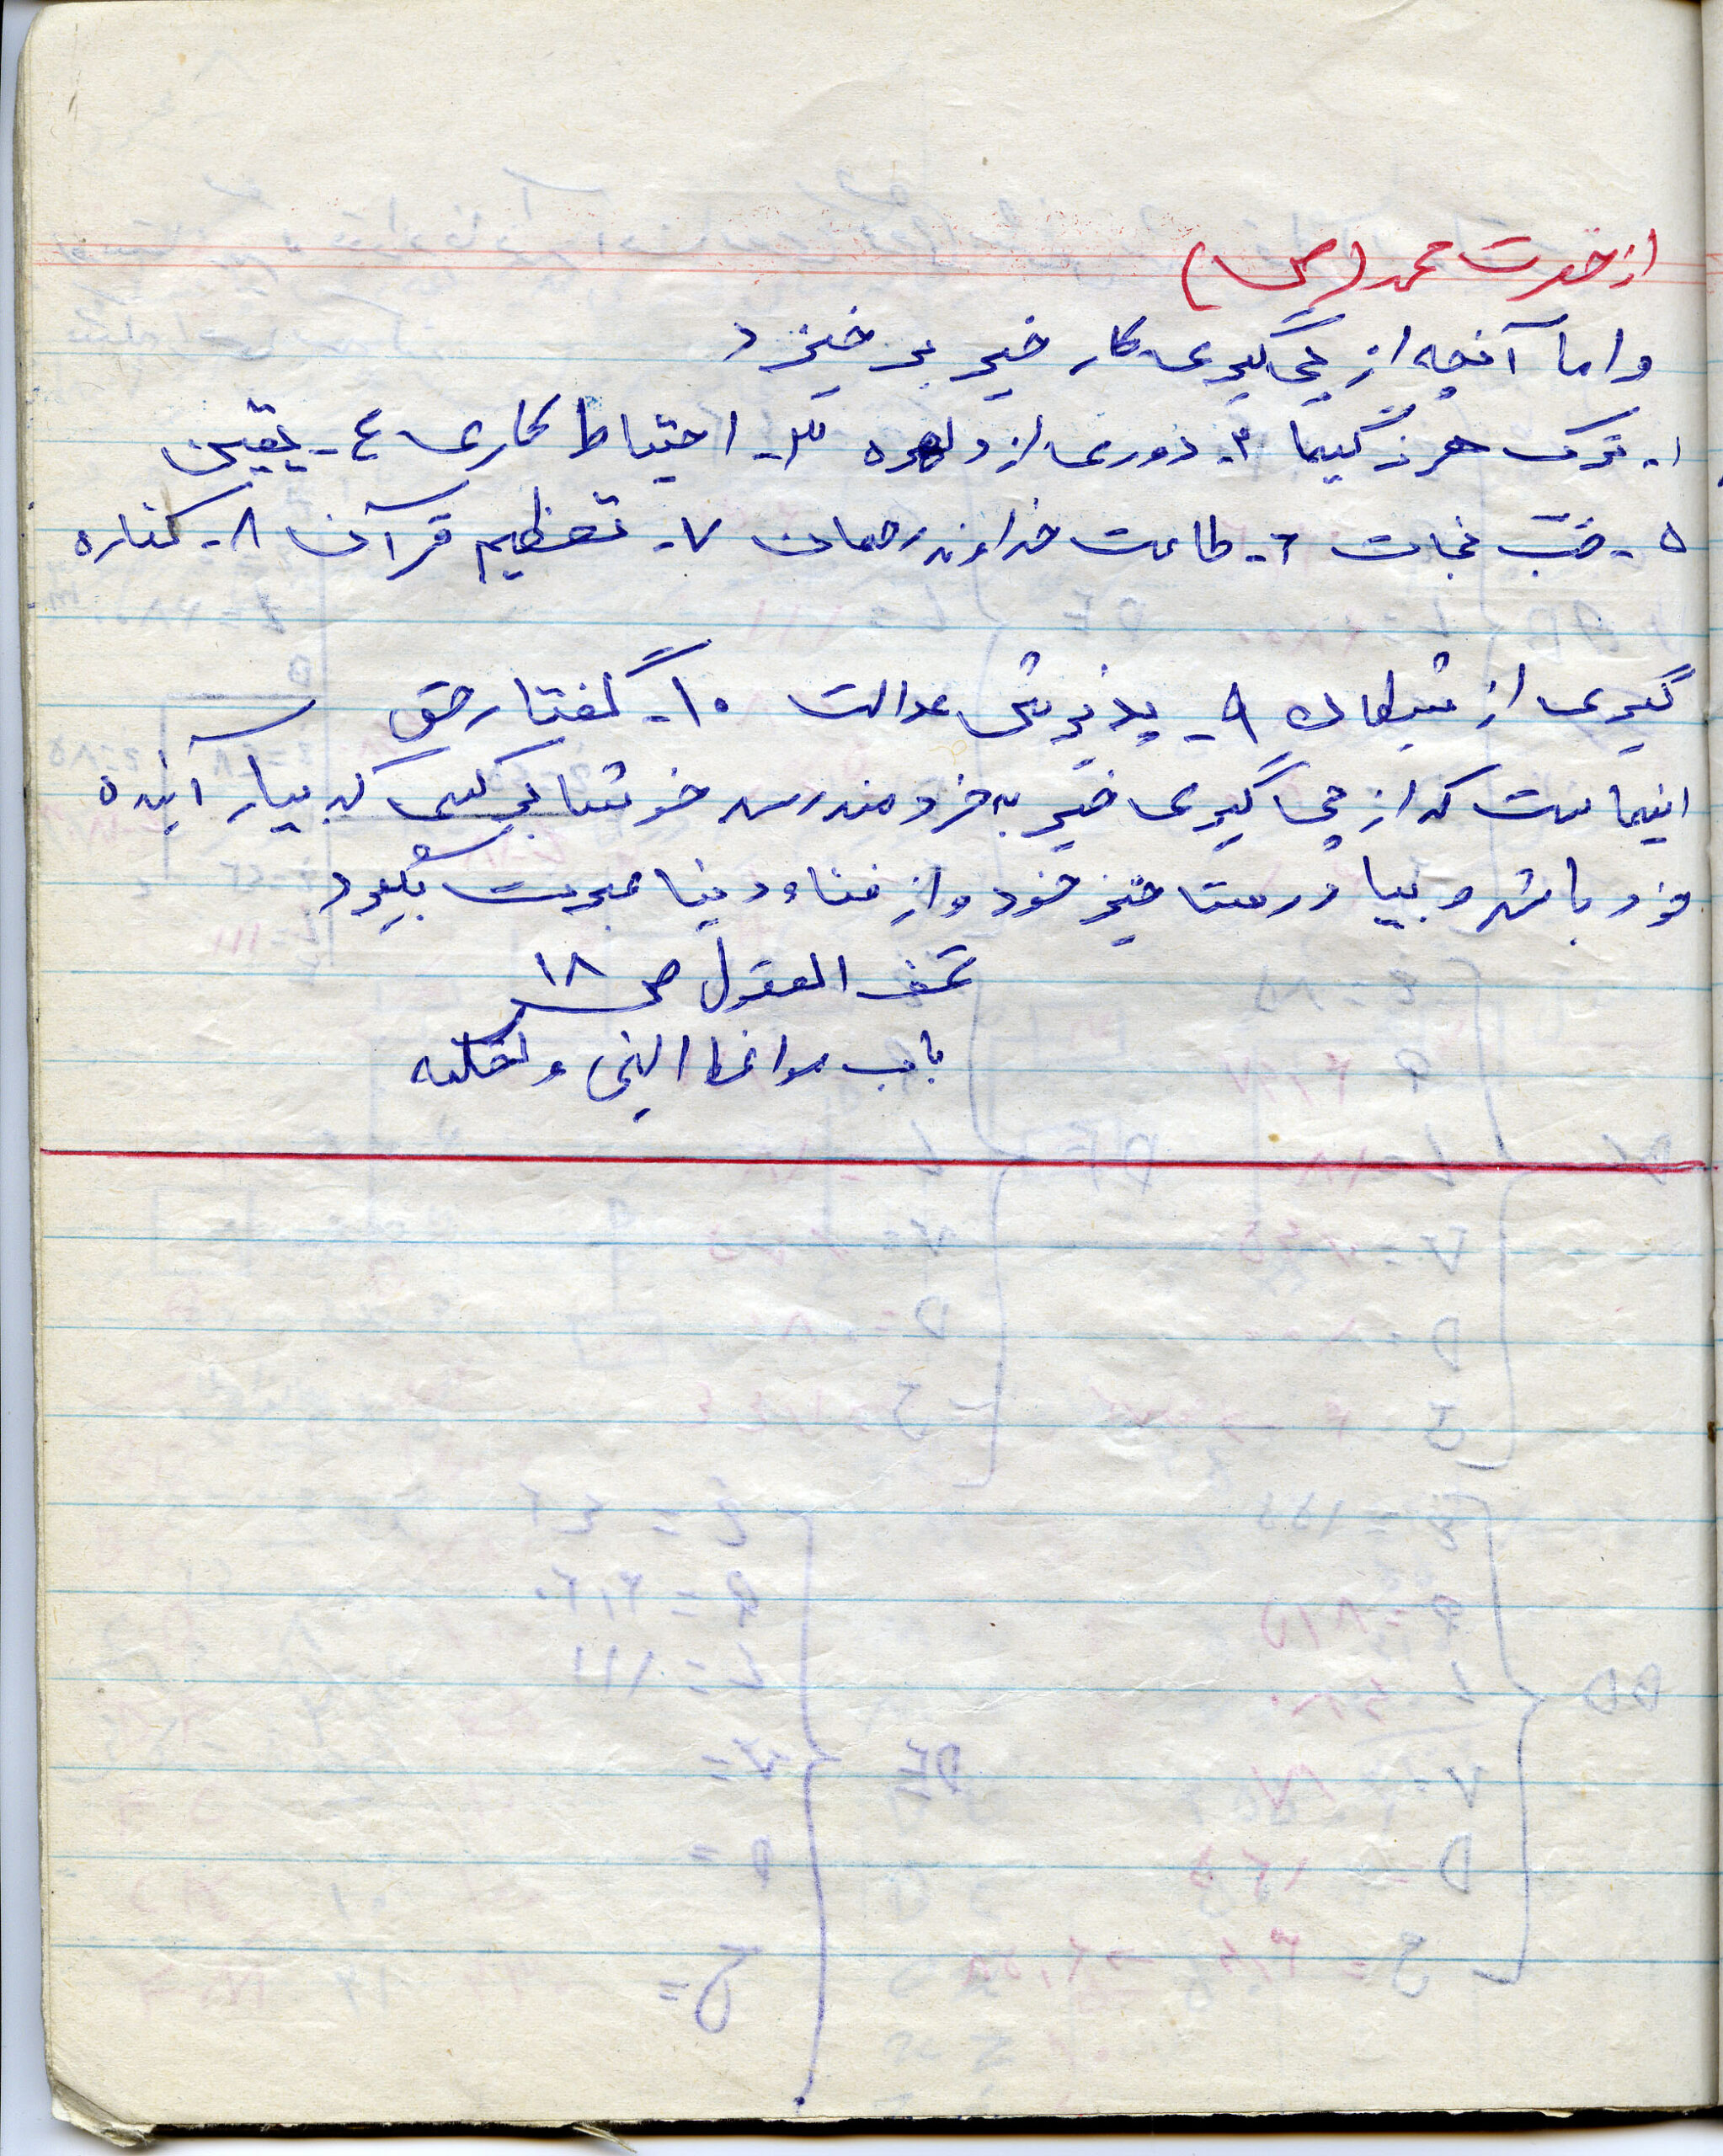 از حضرت محمد (ص)
و اما آنچه از پی گیری کار خیر بر خیزد
۱- ترک هرزگیها ۲- دوری از دلهره ۳- احتیاط کاری ٤- یقین
۵- حب نجات ۶- طاعت خداوند رحمان ۷- تعظیم قرآن ۸- کناره
گیری از شیطان ۹- پذیرش عدالت ۱۰- گفتار حق
اینهاست که از پی گیری خیر به خردمند رسد خوشا بر کسی که بیاد آینده
خود باشد و بیاد رستاخیز خود و از فناء دنیا عبرت بگیرد
تحف العقول ص ۱۸
باب مواعظ النبی و حکمه